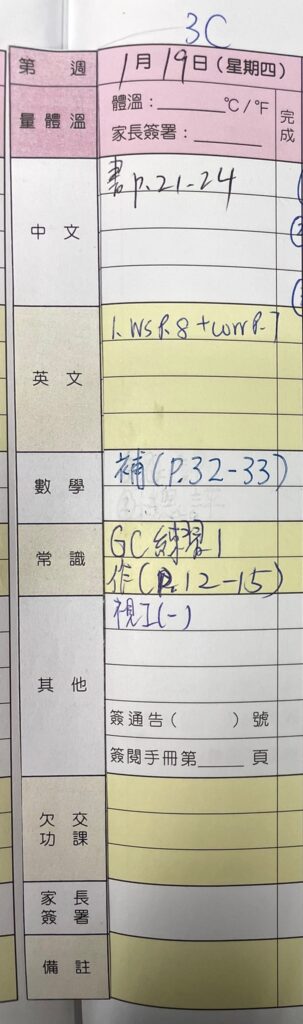 3C
第 週 1月19日(星期四)
量體溫 體溫：______ °C/°F 完成
家長簽署：______
中文 書p.21-24
英文 1. WS P.8 + corr P.7
數學 補(P.32-33)
常識 GC練習1
作(P.12-15)
其他 視工(-)
簽通告( )號
簽閱手冊第____頁
欠交功課
家長簽署
備註